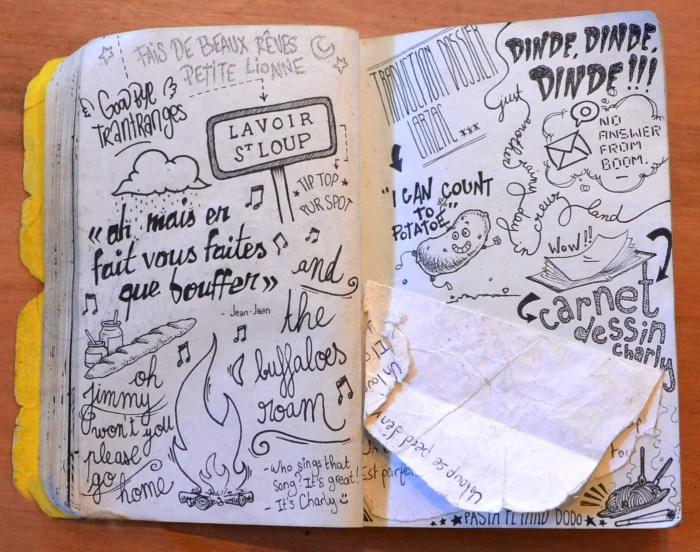 FAIS DE BEAUX RÊVES
PETITE LIONNE
GOODBYE
TRANTRANGES
LAVOIR
ST LOUP
TIP TOP
PUR SPOT
« ah mais en
fait vous faites
que bouffer »
- Jean-Jean
oh
Jimmy
won't you
please
go home
and
the
buffaloes
roam
- who sings that
song? It's great!
- It's Charly
TRADUCTION DOSSIER
LARZAC ***
DINDE, DINDE,
DINDE!!!
just
another
rainy day
in
creux land
NO
ANSWER
FROM
BOOM.
"I CAN COUNT
TO
POTATOE"
WOW!!
carnet
dessin
charly
Un loup se perd
Est parfois
PASTA
DODO